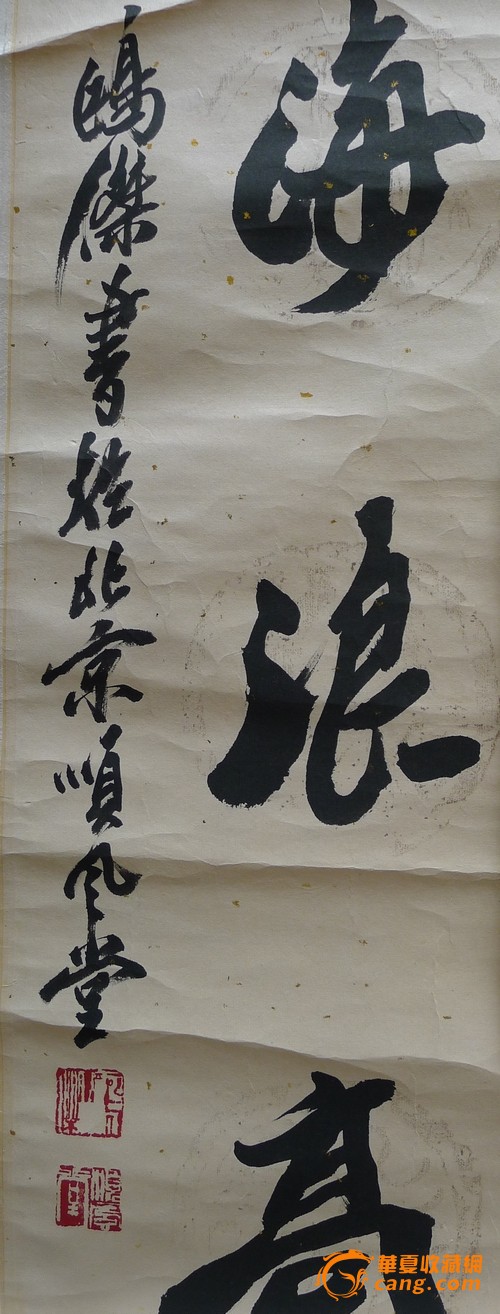 海浪高
傑書於北京順風堂
華夏收藏網
cang.com